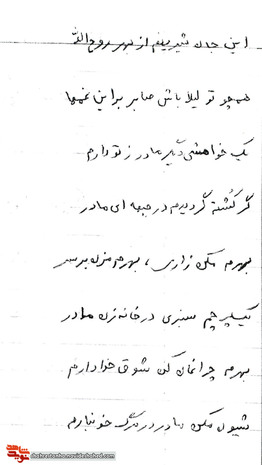 این جان شیرینم از بهر روح الله
همچو تو لیلا باش صابر براین غمها
یک خواهشی دیگر مادر ز تو دارم
گر کشته گردیدم در جبهه ای مادر
بهرم مکن زاری، بهرم مزن بر سر
یک پرچم سبزی در خانه زن مادر
بهرم چراغان کن شوق خدا دارم
شیون مکن مادر در مرگ خونبارم
shohrestanha.navideshahed.com